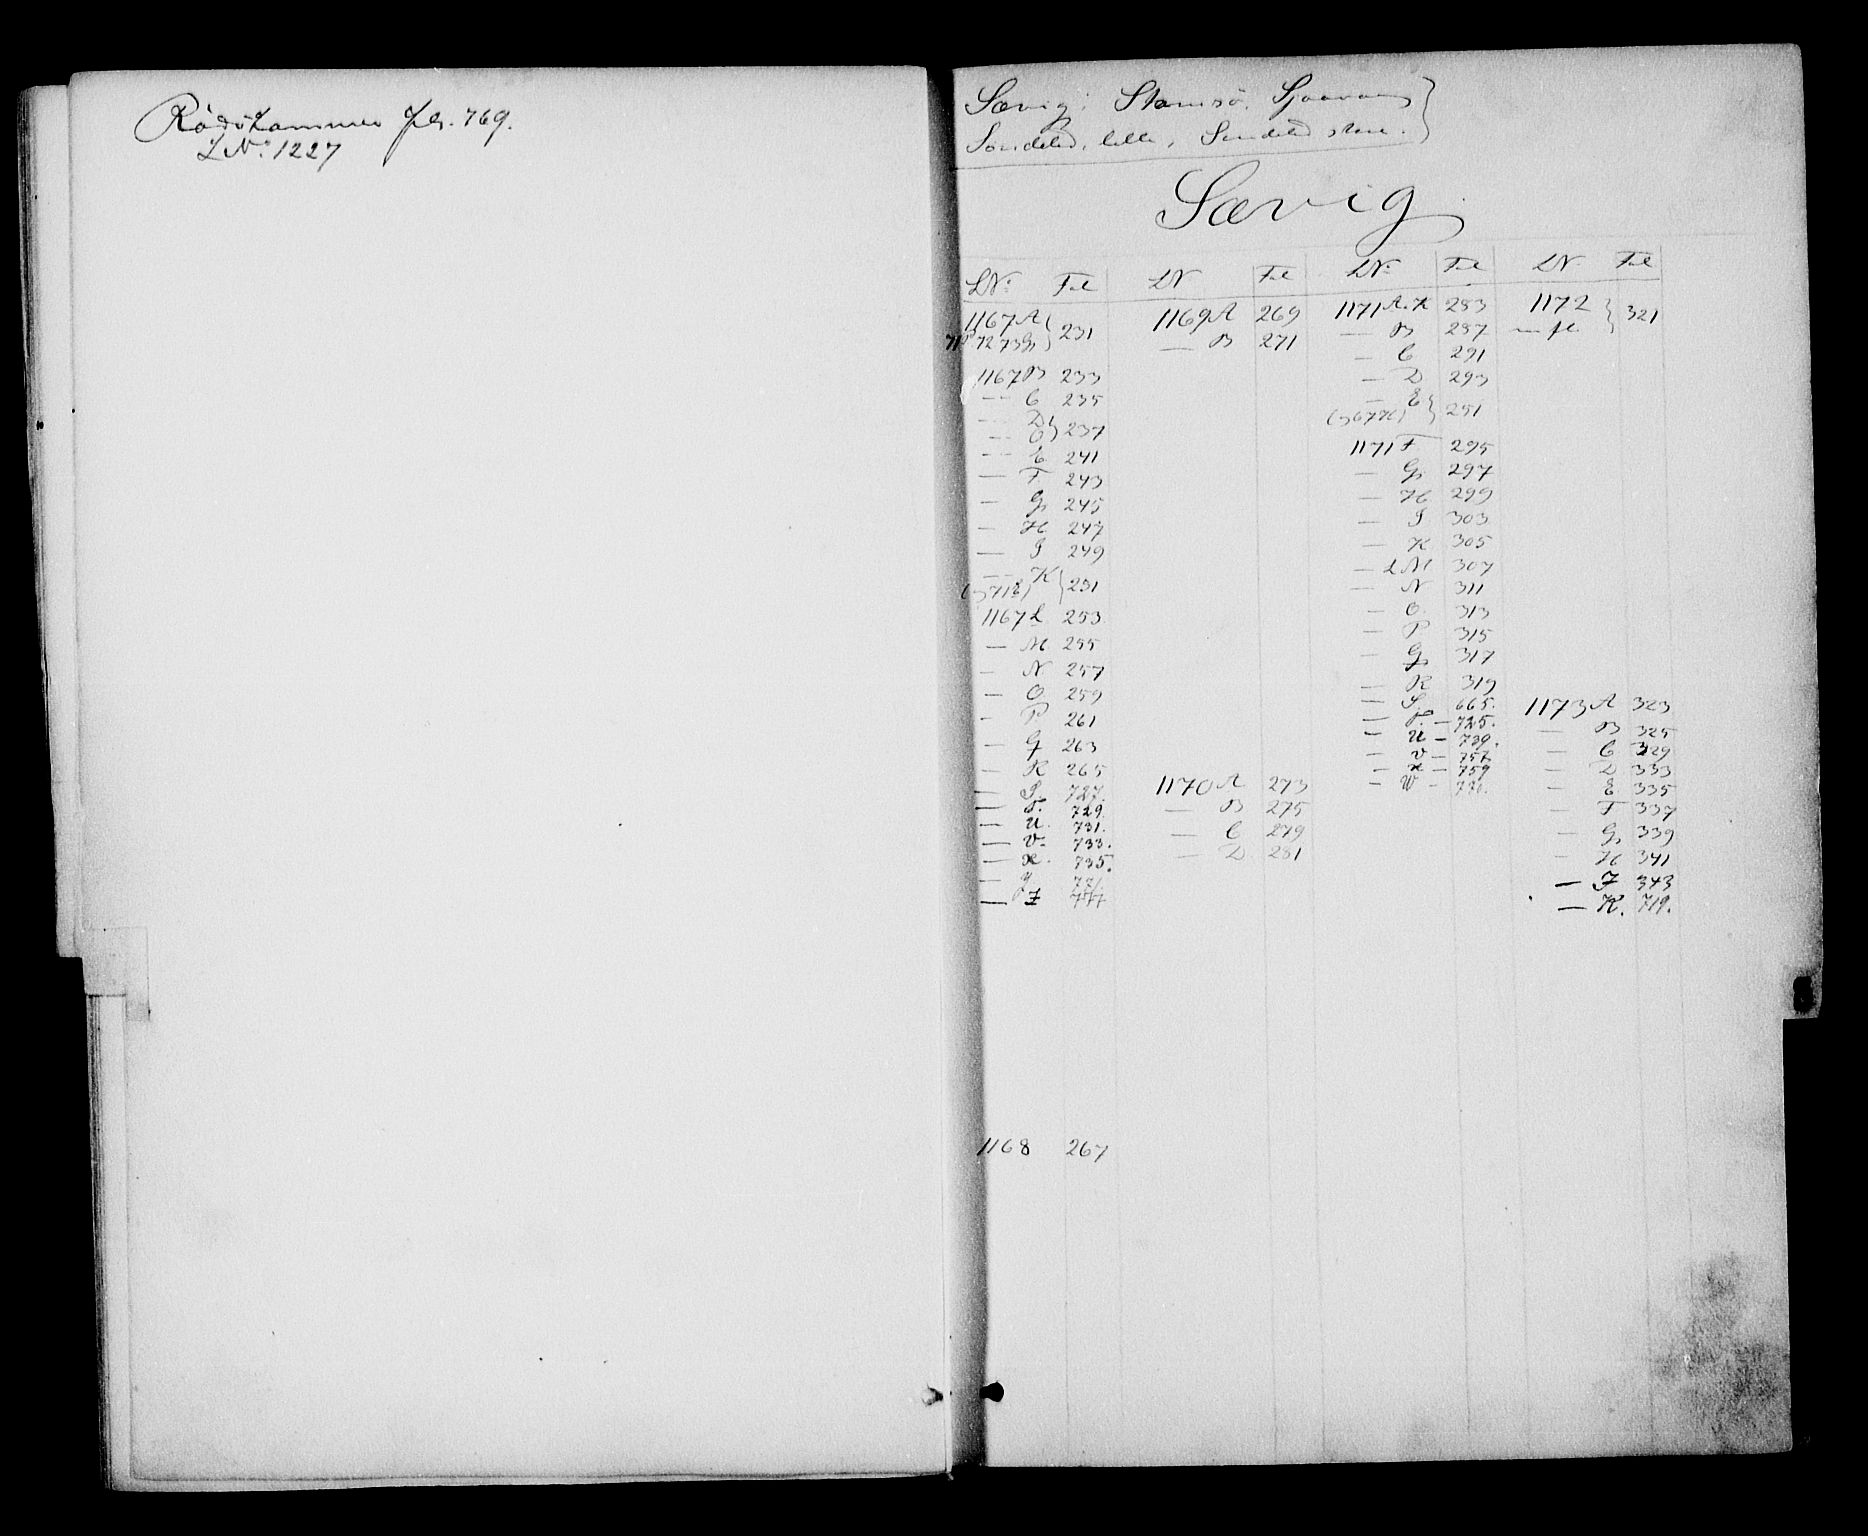 Rødskammer fol. 769.
LNo. 1227
Sævig: Stamsø,
Søndeled, lille, Søndeled store.
Sævig
LNo. Fol LN Fol LNo. Fol LN. Fol
1167 A 231 1169 A 269 1171 A. 283 1172 321
72 73 G — B 271 — B 287 m fl.
— C 291
1167 B 233 — D 293
— C 235 — E 251
— D 237
— E 241 1171 F 295
— F 243 — G 297
— G 245 — H 299
— H 247 — I 303
— I 249 — K 305
— K 251 — L M 307
— N 311
1167 L 253 — O 313
— M 255 — P 315
— N 257 — Q 317
— O 259 — R 319
— P 261 — S. 665. 1173 A 323
— Q 263 — T. — 725. — B 325
— R 265 — U — 739. — C 329
— S. 727. 1170 A 273 — V — 757. — D 333
— T. 729. — B 275 — X — 759 — E 335
— U. 731. — C 279 — W — — F 337
— V. 733. — D 281 — G 339
— X. 735. — H 341
— Y 771. — I 343
— Z 777 — K. 719.
1168 267